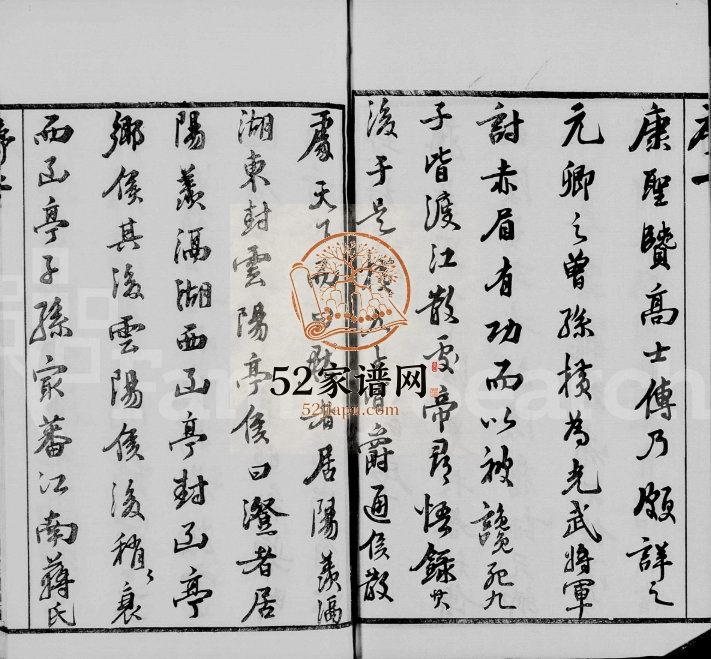 康聖賢高士傳乃頗詳之
元卿之曾孫橫為光武將軍
討赤眉有功而以被讒死九
子皆渡江散處帝尋悟錄其
後于是橫九子皆爵通侯散
處天下而曰默者居陽羨滆
湖東封雲陽亭侯曰澄者居
陽羨滆湖西函亭封函亭
鄉侯其後雲陽侯後稍〻衰
而函亭子孫最蕃江南蔣氏
52家谱网
52jiapu.com